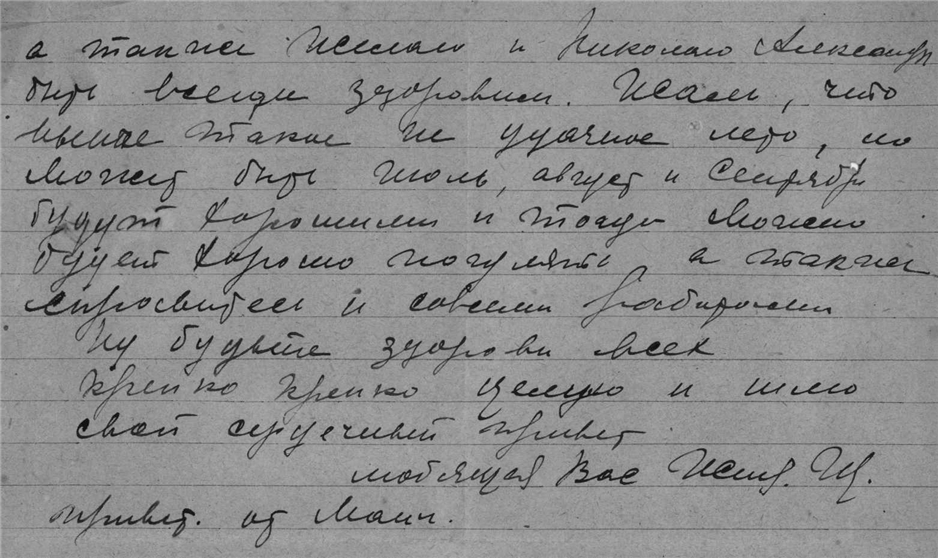 а также желаю и Николаю Александр
быть всегда здоровым. Жаль, что
ныне такое не удачное лето, но
может быть июль, август и сентябрь
будут хорошими и тогда можно
будет хорошо погулять, а также
справитесь и совсеми работами
Ну будьте здоровы всех
крепко крепко целую и шлю
свой сердечный привет
любящая Вас
привет. от Мани.